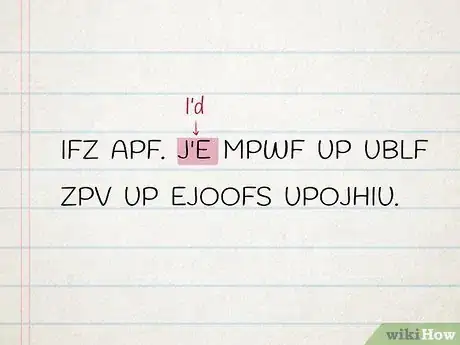 I'd
IFZ APF. J'E MPWF UP UBLF
ZPV UP EJOOFS UPOJHIU.
wikiHow